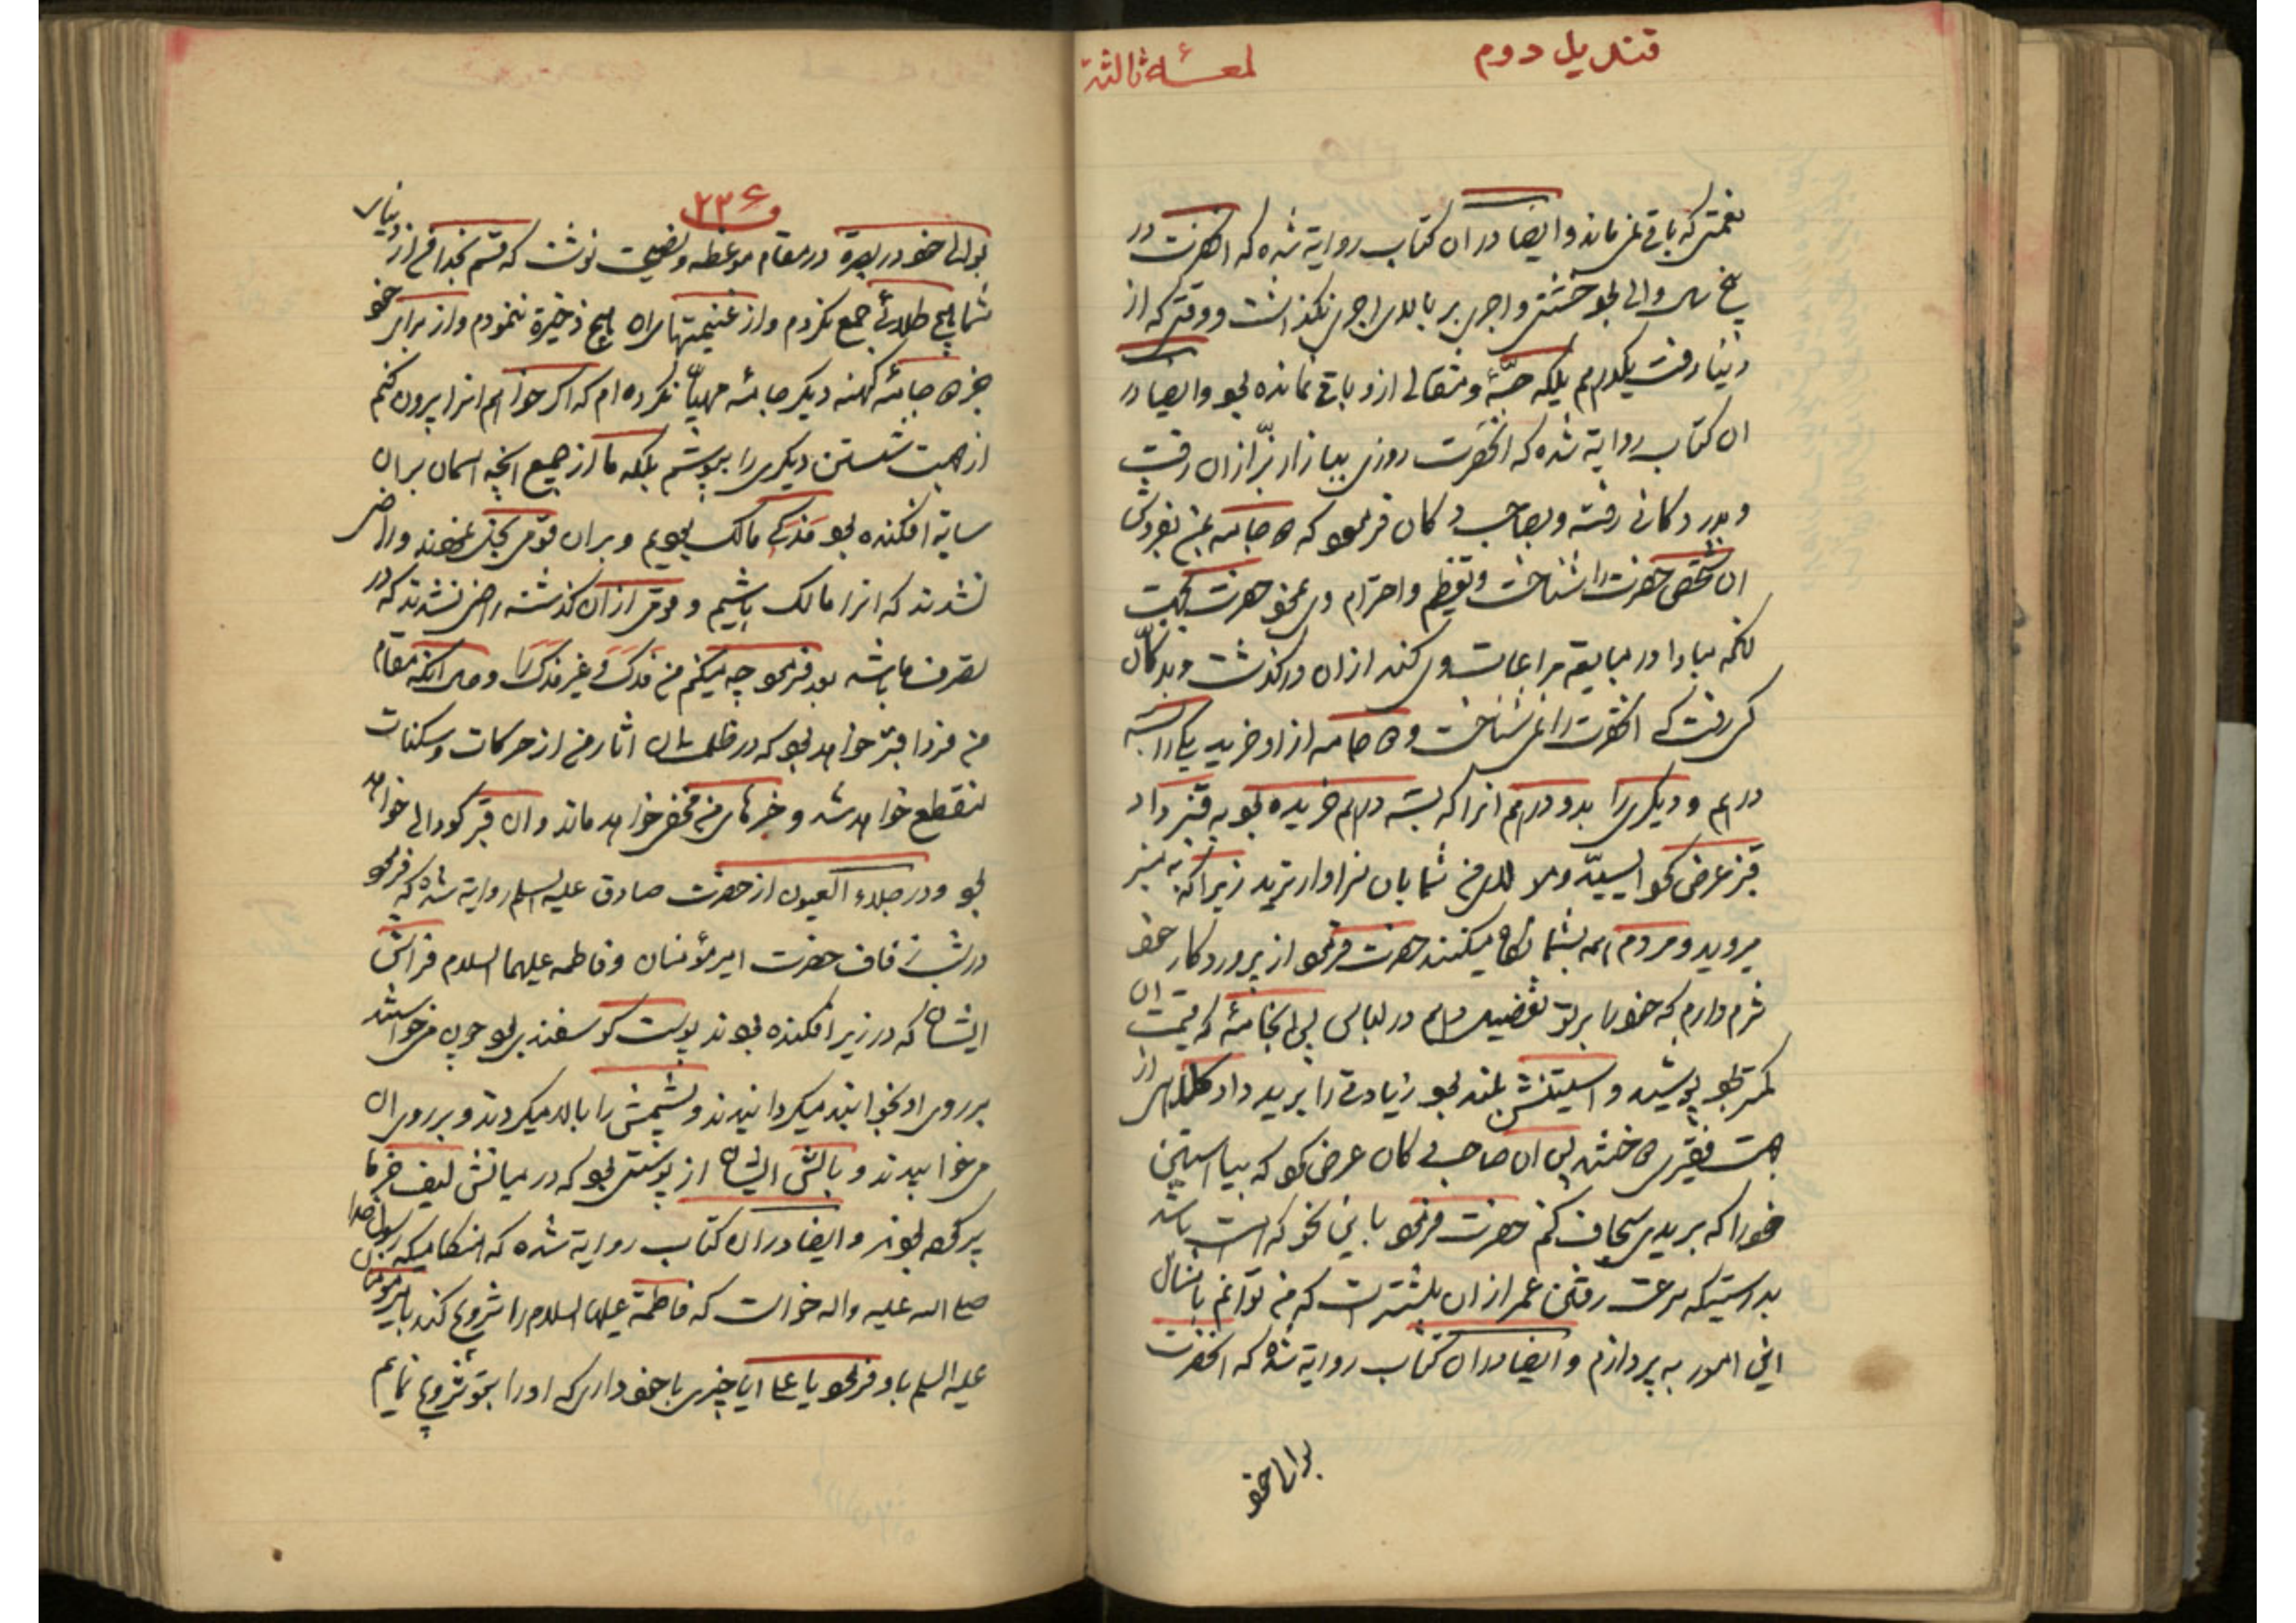 قندیل دوم
لمعـــهٔ ثالثة
نعمتی که باقی نمی‌ماند و ایضا در ان کتاب روایة شده که انحضرت در
پنج سال والی بود خشتی و اجری بر بالای اجری نکذاشت و وقتی که از
دنیا رفت یکدرهم بلکه حبّهٔ و مثقالی ازو باقی نمانده بود و ایضا در
ان کتاب روایة شده که انحضرت روزی ببازار بزّازان رفت
و بدر دکانی رفته و بصاحب دکان فرمود که دو جامه بمن بفروش
ان شخص حضرت را شناخت و تعظیم و احترام وی نمود حضرت بجهت
انکه مبادا در مبایعه مراعات وی کند از ان درکذشت و بدکّان
کسی رفت که انحضرت را نمی شناخت و دو جامه از او خرید یکی را بسه
درهم و دیکری را بدو درهم انرا که بسه درهم خریده بود به قنبر داد
قنبر عرض کرد ای سیّد و مولای من شما بان سزاوارترید زیرا که به منبر
میروید و مردم همه بشما نکاه میکنند حضرت فرمود از پروردکار خود
شرم دارم که خود را بر تو تفضیل دهم در لباس پس انجامهٔ که قیمت ان
کمتر بود پوشید و استینش بلند بود زیادتی را برید و داد کلاهی از
جهت فقیری دوختند پس ان صاحب دکان عرض کرد که بیا استین
خود را که بریدی سجاف کنم حضرت فرمود باین نحو که است باشد
بدرستیکه سرعت رفتن عمر از ان بیشتر است که من توانم بامثال
این امور به پردازم و ایضا در ان کتاب روایة شده که انحضرت
بوالی خود
۲۳۶
بوالی خود در بصرة در مقام موعظه و نصیحت نوشت که قسم بخدا من از دنیای
شما هیچ طلائی جمع نکردم و از غنیمتهای ان هیچ ذخیرة ننمودم و از برای خود
جز دو جامهٔ کهنه دیکر جامهٔ مهیّا نکرده ام که اکر خواهم انرا بیرون کنم
از جهت شستن دیکری را بپوشم بلکه ما از جمیع انچه اسمان بر ان
سایة افکنده بود فدکی مالک بودیم و بر ان قومی بخل نمودند و راضی
نشدند که انرا مالک باشیم و قومی از ان کذشته راضی نشدند که در
تصرف ما باشد بعد فرمود چه میکنم من فدک و غیر فدک را و حال انکه مقام
من فردا قبر خواهد بود که در ظلمت ان اثار من از حرکات و سکنات
منقطع خواهد شد و خبرهای من مخفی خواهد ماند و ان قبر کودالی خواهد
بود و در جلاء العیون از حضرت صادق علیه السلم روایة شده که فرمود
در شب زفاف حضرت امیر مؤمنان و فاطمه علیهما السلام فراش
ایشان که در زیر افکنده بودند پوست کوسفندی بود چون می خواستند
بر روی او بخوابند میکردانیدند و پشمش را بالا میکردند و بر روی ان
می خوابیدند و بالش ایشان از پوستی بود که در میانش لیف خرما
پر کرده بودند و ایضا در ان کتاب روایة شده که هنکامیکه رسول خدا
صلی الله علیه واله خواست که فاطمة علیها السلام را تزویج کند بامیر مومنان
علیه السلم باو فرمود یا علی ایا چیزی با خود داری که او را بتو تزویج نمایم